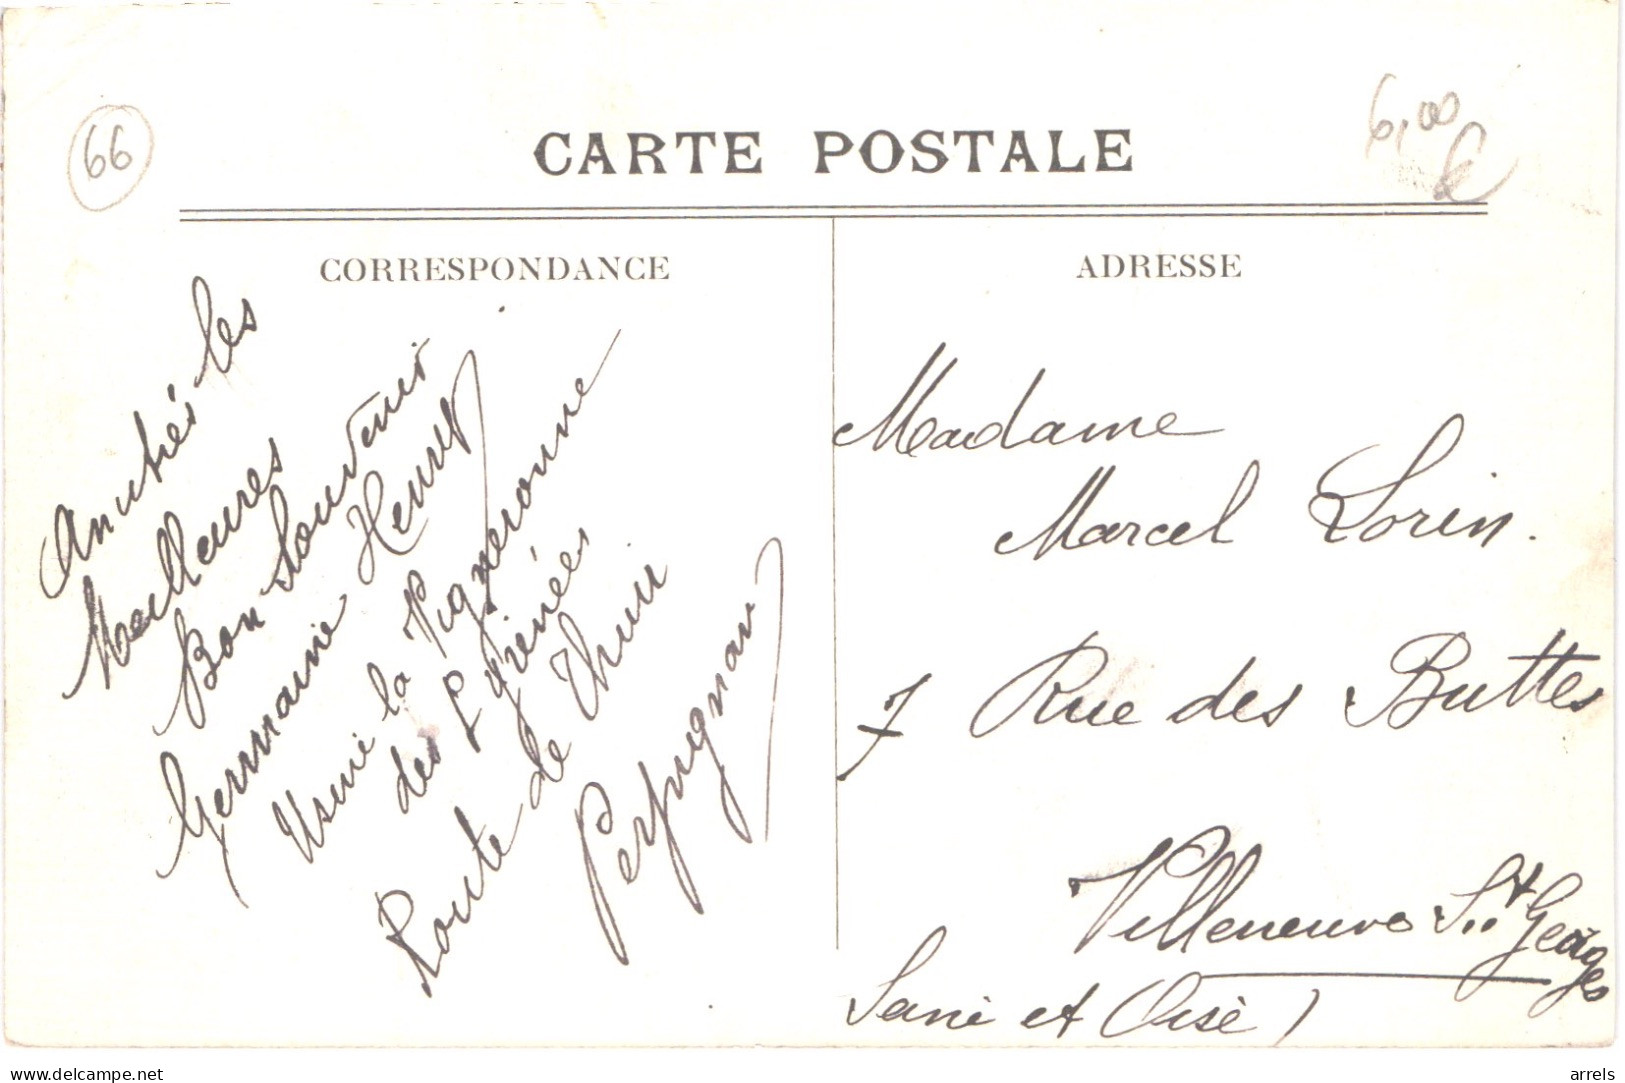 66
6,00 €
CARTE POSTALE
CORRESPONDANCE
ADRESSE
Amitiés les
Meilleures
Bon Souvenir
Germaine Henry
Usine la Vigneronne
des Pyrénées
Route de Thuir
Perpignan
Madame
Marcel Lorin.
7 Rue des Buttes
Villeneuve St Georges
Seine et Oise)
www.delcampe.net
arrels